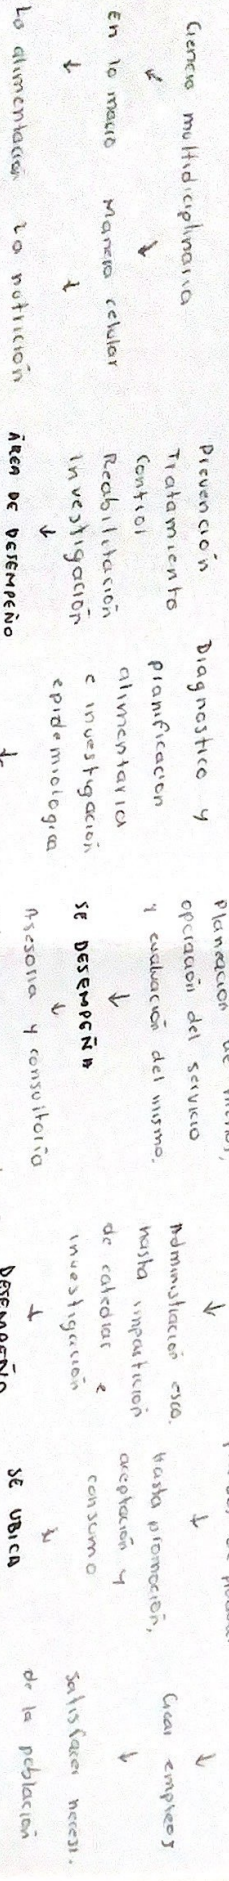 Ciencia multidiciplinaria
En lo macro
Manera celular
La alimentación
La nutrición
Prevención
Tratamiento
Control
Reabilitación
Investigación
ÁREA DE DESEMPEÑO
Diagnostico y
planificación
alimentaria
e investigación
epidemiologica
Planeación de
operación del servicio
y evaluación del mismo.
SE DESEMPEÑA
Asesoria y consultoria
Administración esco.
hasta impartición
de catedras e
investigación
DESEMPEÑO
hasta promoción,
aceptación y
consumo
SE UBICA
Crear empleos
Satisfacer necesi.
de la población